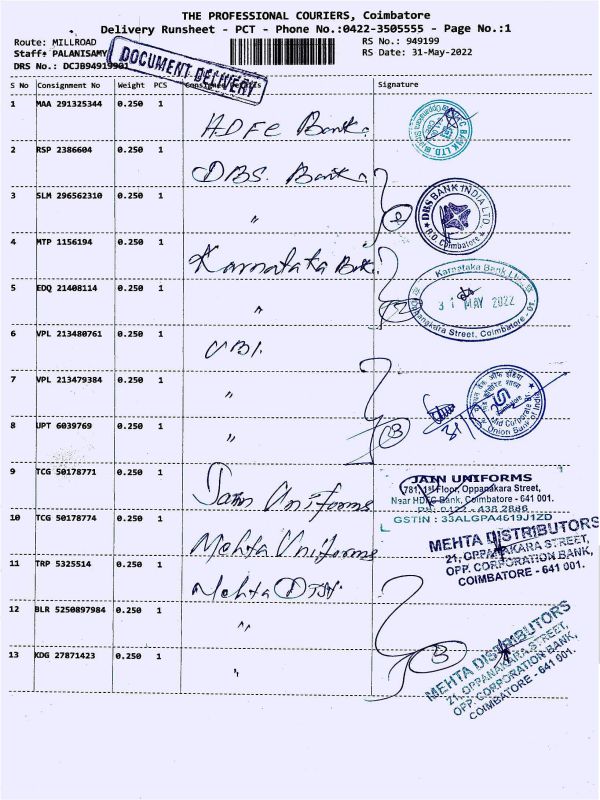 THE PROFESSIONAL COURIERS, Coimbatore
Delivery Runsheet - PCT - Phone No.:0422-3505555 - Page No.:1
Route: MILLROAD RS No.: 949199
Staff: PALANISAMY RS Date: 31-May-2022
DRS No.: DCJB94919901
DOCUMENT DELIVERY
S No Consignment No Weight PCS Signature
1 MAA 291325344 0.250 1
HDFC Bank.
2 RSP 2386604 0.250 1
DBS. Bank
DBS BANK INDIA LTD.,
R.O. Coimbatore
3 SLM 296562310 0.250 1
"
4 MTP 1156194 0.250 1
Karnataka Bk.
Karnataka Bank Ltd.
31 MAY 2022
Oppanakara Street, Coimbatore - 01.
5 EDQ 21408114 0.250 1
"
6 VPL 213480761 0.250 1
UBI.
7 VPL 213479384 0.250 1
"
यूनियन बैंक ऑफ इंडिया
Mid Corporate
Union Bank of India
8 UPT 6039769 0.250 1
"
3
9 TCG 50178771 0.250 1
Jain Uniforms
JAIN UNIFORMS
781, 1st Floor, Oppanakara Street,
Near HDFC Bank, Coimbatore - 641 001.
PH: 0422 - 438 2846
GSTIN : 33ALGPA4619J1ZD
10 TCG 50178774 0.250 1
Mehta Uniforms
MEHTA DISTRIBUTORS
21, OPPANAKARA STREET,
OPP. CORPORATION BANK,
COIMBATORE - 641 001.
11 TRP 5325514 0.250 1
Mehta
12 BLR 5250897984 0.250 1
"
13 KDG 27871423 0.250 1
"
3
MEHTA DISTRIBUTORS
21, OPPANAKARA STREET,
OPP. CORPORATION BANK,
COIMBATORE - 641 001.